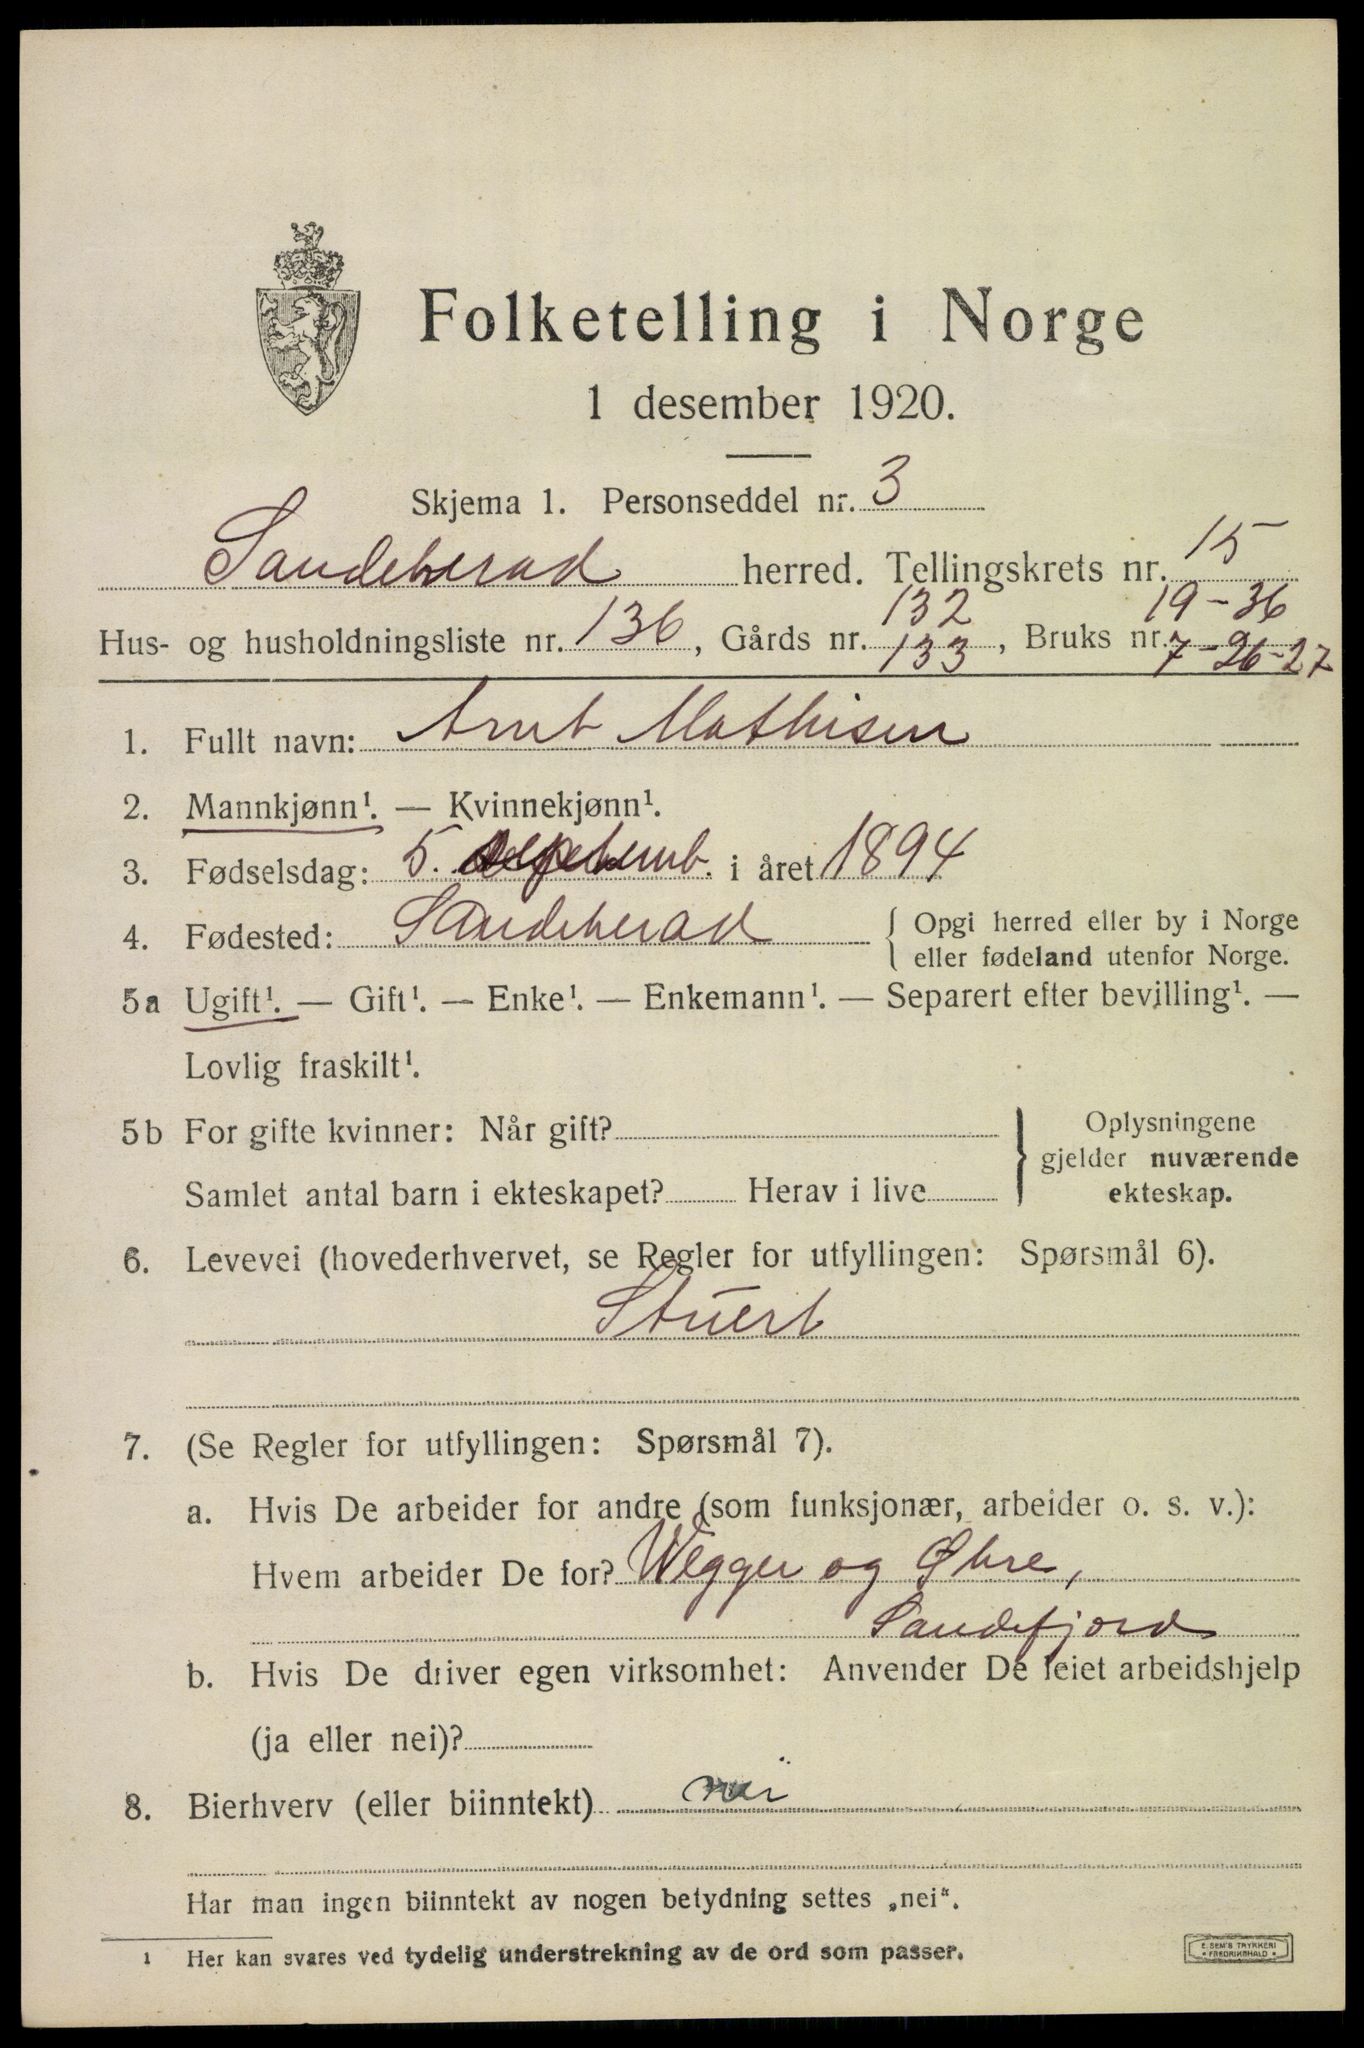 Folketelling i Norge
1 desember 1920.
Skjema 1. Personseddel nr. 3
Sandeherad herred. Tellingskrets nr. 15
132 19-36
Hus- og husholdningsliste nr. 136, Gårds nr. 133, Bruks nr. 7-26-27
1. Fullt navn: Arnt Mathisen
2. Mannkjønn¹. — Kvinnekjønn¹.
3. Fødselsdag: 5. septemb. i året 1894
4. Fødested: Sandeherad { Opgi herred eller by i Norge
eller fødeland utenfor Norge.
5a Ugift¹. — Gift¹. — Enke¹. — Enkemann¹. — Separert efter bevilling¹. —
Lovlig fraskilt¹.
5b For gifte kvinner: Når gift? } Oplysningene
gjelder nuværende
Samlet antal barn i ekteskapet? Herav i live ekteskap.
6. Levevei (hovederhvervet, se Regler for utfyllingen: Spørsmål 6).
Stuert
7. (Se Regler for utfyllingen: Spørsmål 7).
a. Hvis De arbeider for andre (som funksjonær, arbeider o. s. v.):
Hvem arbeider De for? Wegger og Øhre,
Sandefjord
b. Hvis De driver egen virksomhet: Anvender De leiet arbeidshjelp
(ja eller nei)?
8. Bierhverv (eller biinntekt) nei
Har man ingen biinntekt av nogen betydning settes „nei“.
¹ Her kan svares ved tydelig understrekning av de ord som passer.
E. SEM'S TRYKKERI
FREDRIKSHALD